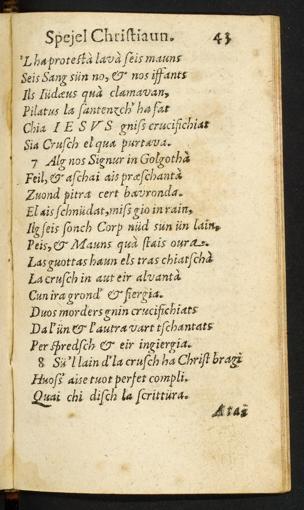 Spejel Christiaun. 43
'L ha protestà lavà seis mauns
Seis Sang sün no, & nos iffants
Ils Iüdæus quà clamavan,
Pilatus la santenzch' ha fat
Chia IESVS gniss crucifichiat
Sia Crusch el qua purtava.
7 Alg nos Signur in Golgothà
Feil, & aschai ais præschantà
Zuond pitra cert bavronda.
El ais schnüdat, miss gio in rain,
Ilg seis sonch Corp nüd sun ün lain,
Peis, & Mauns quà stais oura.
Las guottas haun els tras chiatschà
La crusch in aut eir alvantà
Cun ira grond' & fiergia.
Duos morders gnin crucifichiats
Da l'ün & l'autra vart tschantats
Per spredsch & eir ingiergia.
8 Sü'l lain d'la crusch ha Christ bragi
Huoss' aise tuot perfet compli.
Quai chi disch la scrittüra.
Atai